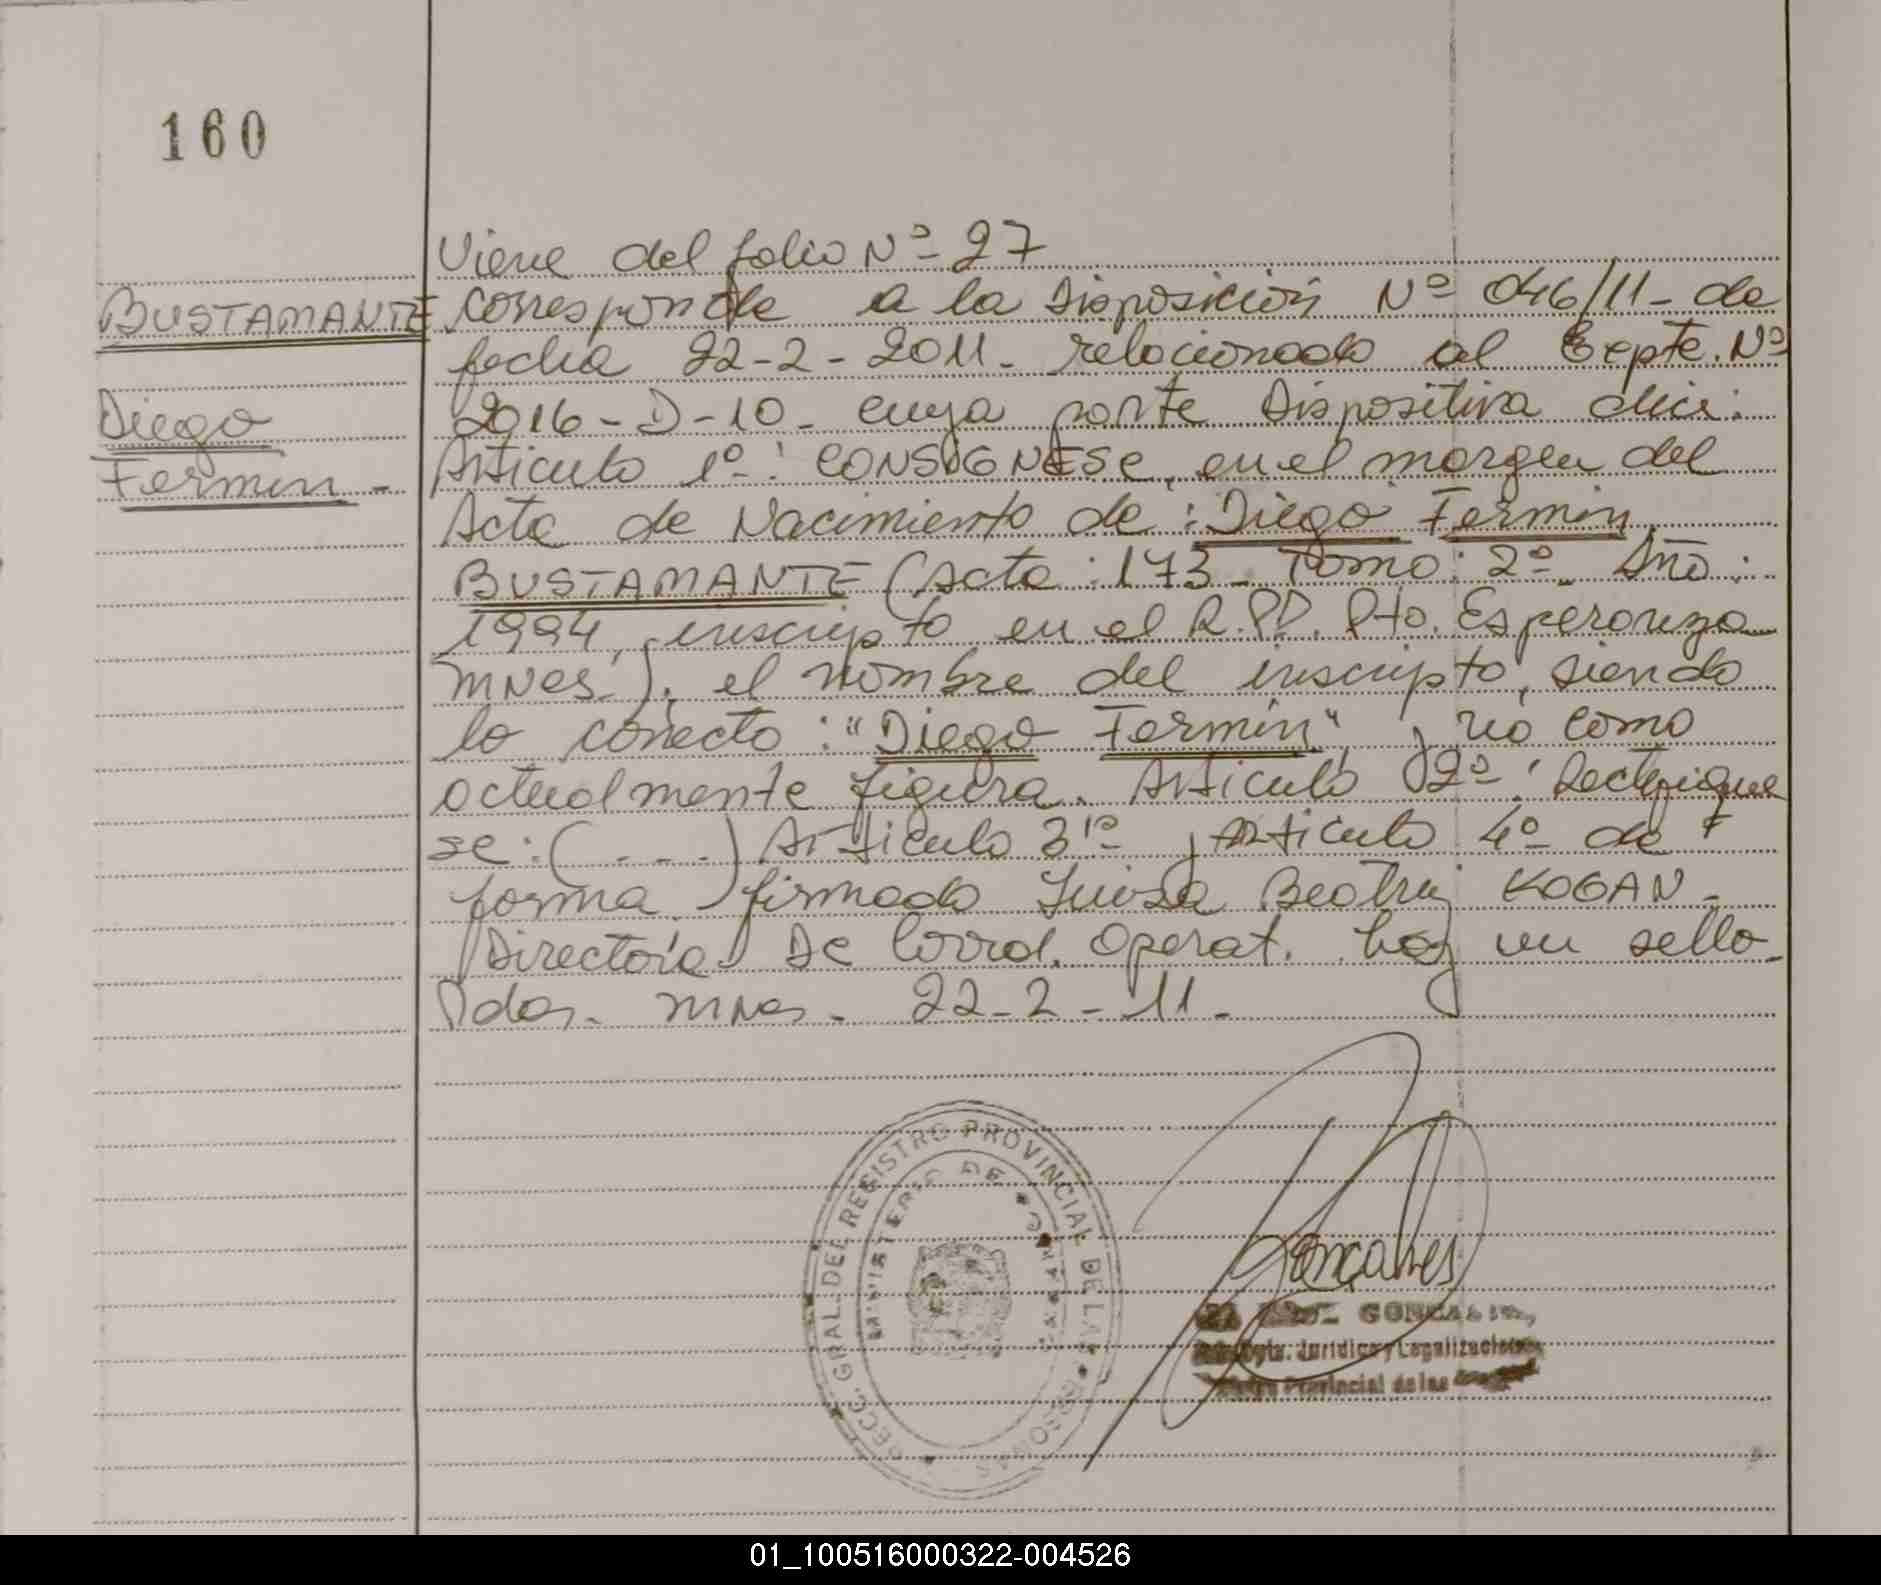 160
Viene del folio Nº- 27
BUSTAMANTE corresponde a la Disposición Nº 046/11- de
fecha 22-2-2011- relacionado al Expte. Nº
Diego 2016-D-10- cuya parte Dispositiva dice:
Fermin - Articulo 1º-: CONSIGNESE, en el margen del
Acta de Nacimiento de: Diego Fermin
BUSTAMANTE (Acta: 173- Tomo: 2º- Año:
1994, inscripto en el R.P.P. Pto. Esperanza
MNes.), el nombre del inscripto, siendo
lo correcto: "Diego Fermín", y no como
actualmente figura. Articulo 2º-: Rectifique
se: (....) Articulo 3º- y Articulo 4º- de
forma. firmado Luisa Beatriz KOGAN -
Directora De Coord. Operat. hay un sello-
Pdas- MNes- 22-2-11-
DIRECC. GRAL. DEL REGISTRO PROVINCIAL DE LAS PERSONAS
MINISTERIO DE
Goncalves
Jurídica y Legalizaciones
Provincial de las
01_100516000322-004526